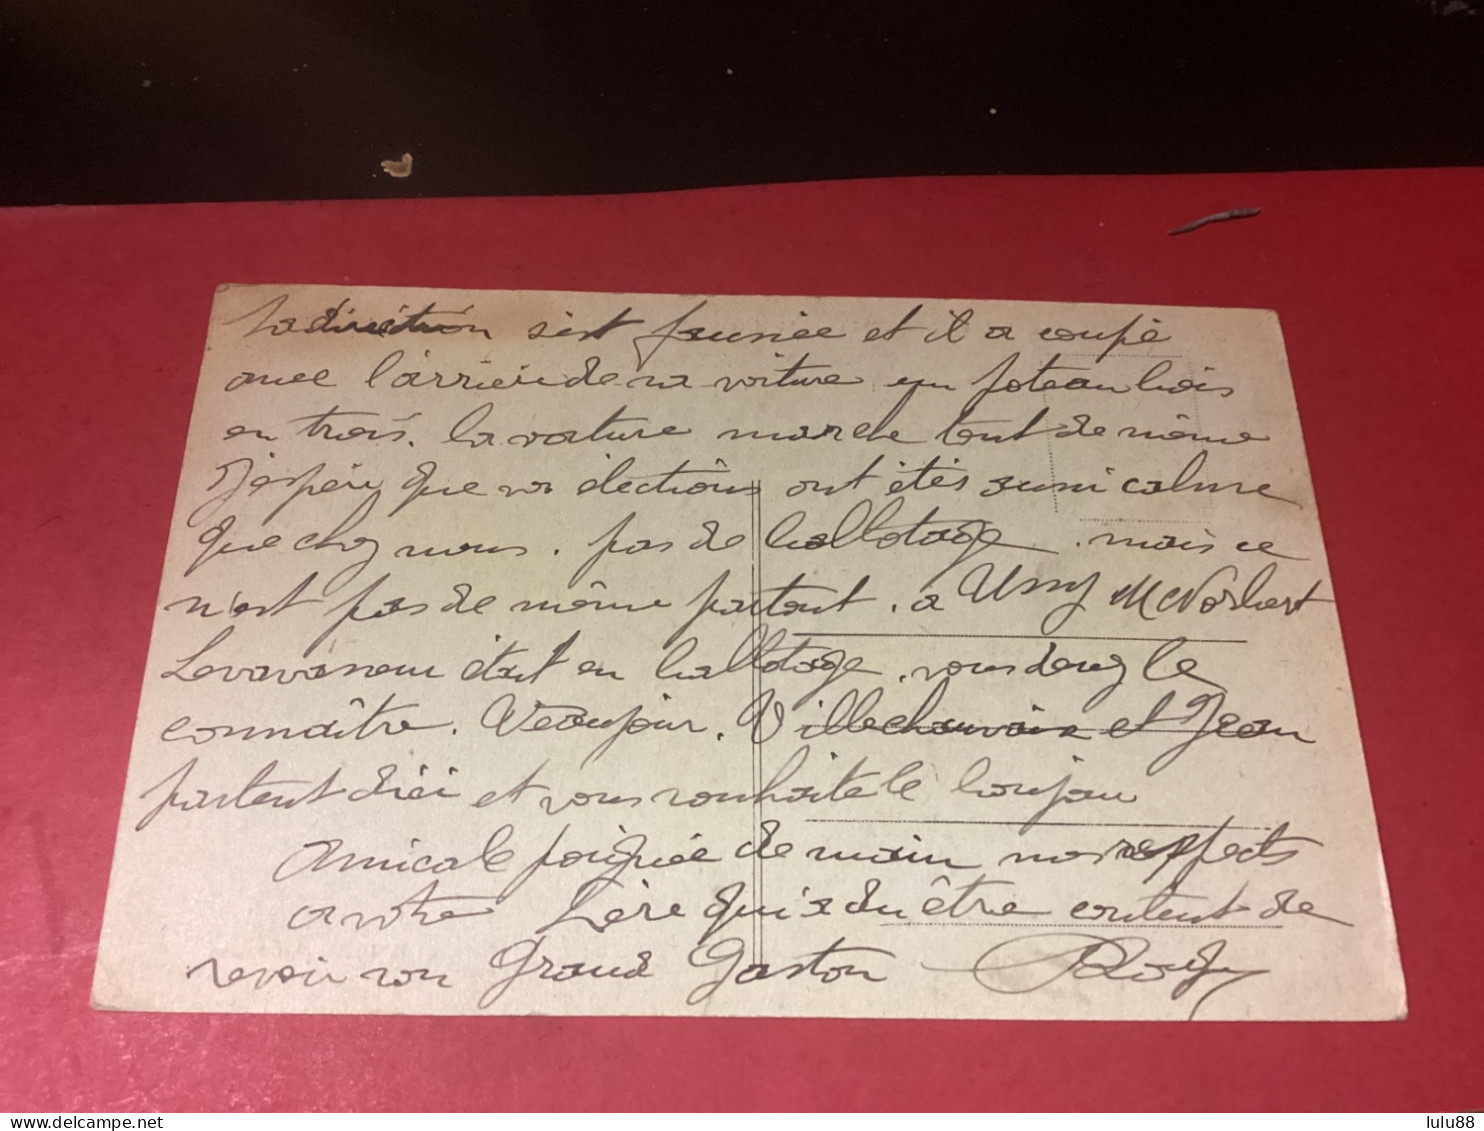 la direction s'est faussée et il a coupé
avec l'arrière de sa voiture un poteau bois
en trois. la voiture marche tout de même
J'espère que vos élections ont étés aussi calme
que chez nous. pas de ballotage. mais ce
n'est pas de même partout. a Ussy Mr Norbert
Levavasseur était en ballotage. vous devez le
connaître. Veaujour. Villechauvoix et Jean
partent d'ici et vous souhaite le bonjour
Amicale poignée de main nos respects
a votre Père qui a du être content de
revoir son Grand Gaston
lulu88